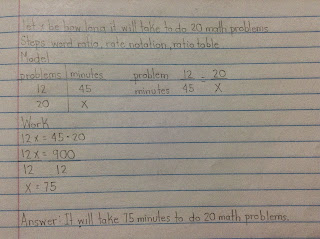 Let x be how long it will take to do 20 math problems
Steps: word ratio, rate notation, ratio table
Model
problems minutes problem 12 = 20
12 45 minutes 45 X
20 X
Work
12x = 45 · 20
12x = 900
12 12
x = 75
Answer: It will take 75 minutes to do 20 math problems.